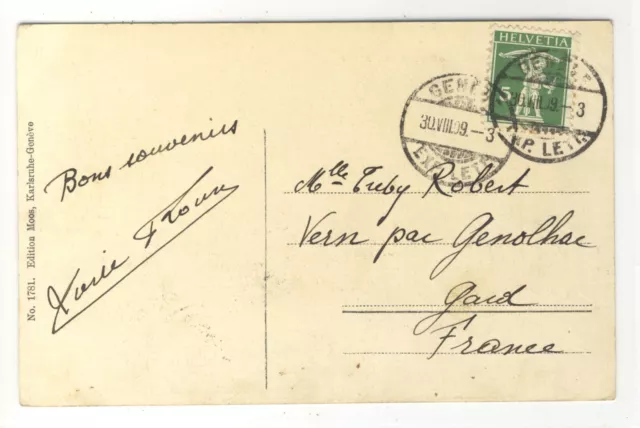 No. 1781. Edition Moos, Karlsruhe-Genève
Bons souvenirs
HELVETIA
5
GENÈV
30.VIII.09.-3
EXP. LETT.
30.VIII.09.-3
EXP. LETT.
Mlle Robert
Vern par Genolhac
Gard
France